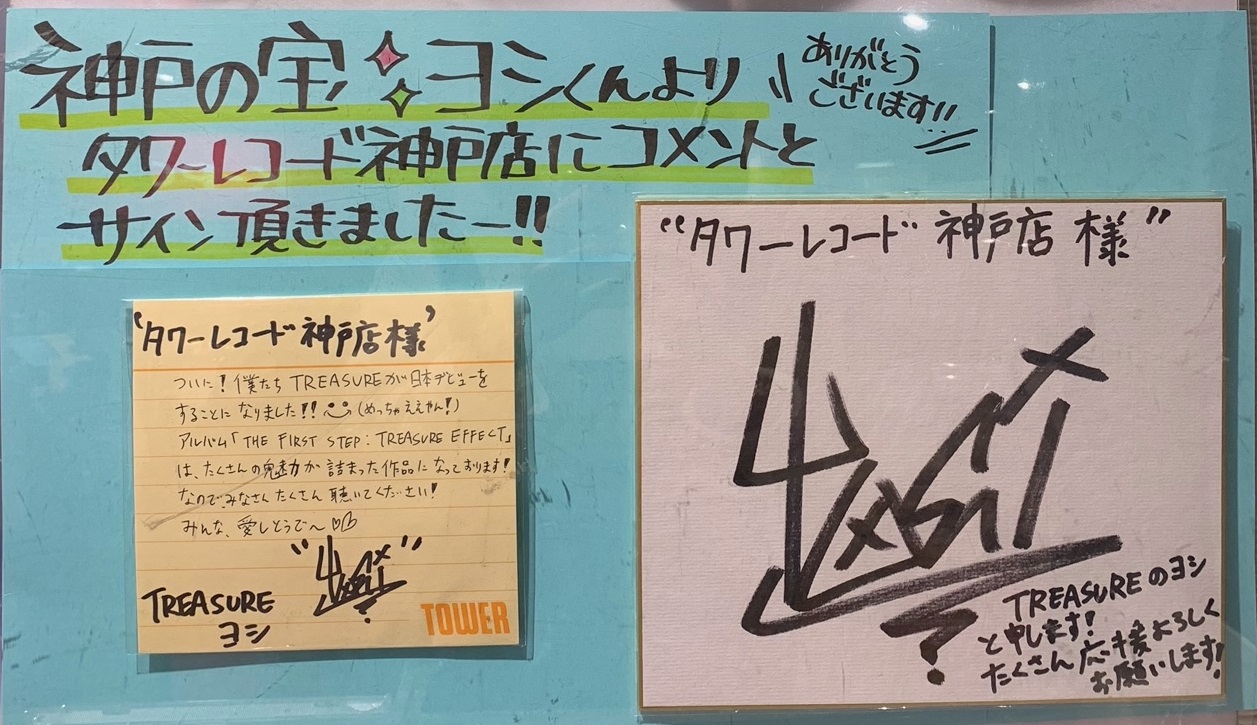 神戸の宝 ヨシくんより
ありがとう
ございます!!
タワーレコード神戸店にコメントと
サイン頂きましたー!!
'タワーレコード 神戸店様'
ついに!僕たち TREASUREが日本デビューを
することに なりました!! (めっちゃええやん!)
アルバム「THE FIRST STEP : TREASURE EFFECT」
は、たくさんの魅力が 詰まった作品になっております!
なので、みなさん たくさん 聴いてください!
みんな、愛しとうで〜♡
TREASURE
ヨシ
TOWER
"タワーレコード 神戸店 様"
TREASUREのヨシ
と申します!
たくさん応援よろしく
お願いします!